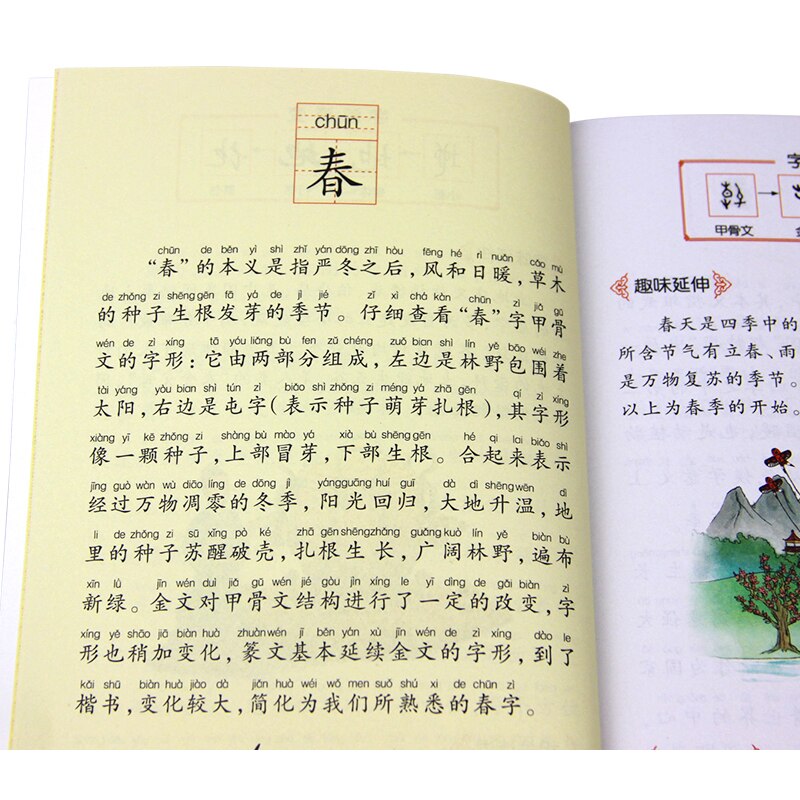 chūn
春
chūn de běn yì shì zhǐ yán dōng zhī hòu fēng hé rì nuǎn cǎo mù
“春”的本义是指严冬之后，风和日暖，草木
de zhǒng zi shēng gēn fā yá de jì jié zǐ xì chá kàn chūn zì jiǎ gǔ
的种子生根发芽的季节。仔细查看“春”字甲骨
wén de zì xíng tā yóu liǎng bù fen zǔ chéng zuǒ bian shì lín yě bāo wéi zhe
文的字形：它由两部分组成，左边是林野包围着
tài yáng yòu bian shì tún zì biǎo shì zhǒng zi méng yá zhā gēn qí zì xíng
太阳，右边是屯字（表示种子萌芽扎根），其字形
xiàng yì kē zhǒng zi shàng bù mào yá xià bù shēng gēn hé qi lai biǎo shì
像一颗种子，上部冒芽，下部生根。合起来表示
jīng guò wàn wù diāo líng de dōng jì yáng guāng huí guī dà dì shēng wēn dì
经过万物凋零的冬季，阳光回归，大地升温，地
li de zhǒng zi sū xǐng pò ké zhā gēn shēng zhǎng guǎng kuò lín yě biàn bù
里的种子苏醒破壳，扎根生长，广阔林野，遍布
xīn lǜ jīn wén duì jiǎ gǔ wén jié gòu jìn xíng le yí dìng de gǎi biàn zì
新绿。金文对甲骨文结构进行了一定的改变，字
xíng yě shāo jiā biàn huà zhuàn wén jī běn yán xù jīn wén de zì xíng dào le
形也稍加变化，篆文基本延续金文的字形，到了
kǎi shū biàn huà jiào dà jiǎn huà wéi wǒ men suǒ shú xi de chūn zì
楷书，变化较大，简化为我们所熟悉的春字。
字
甲骨文
趣味延伸
春天是四季中的
所含节气有立春、雨
是万物复苏的季节。
以上为春季的开始。